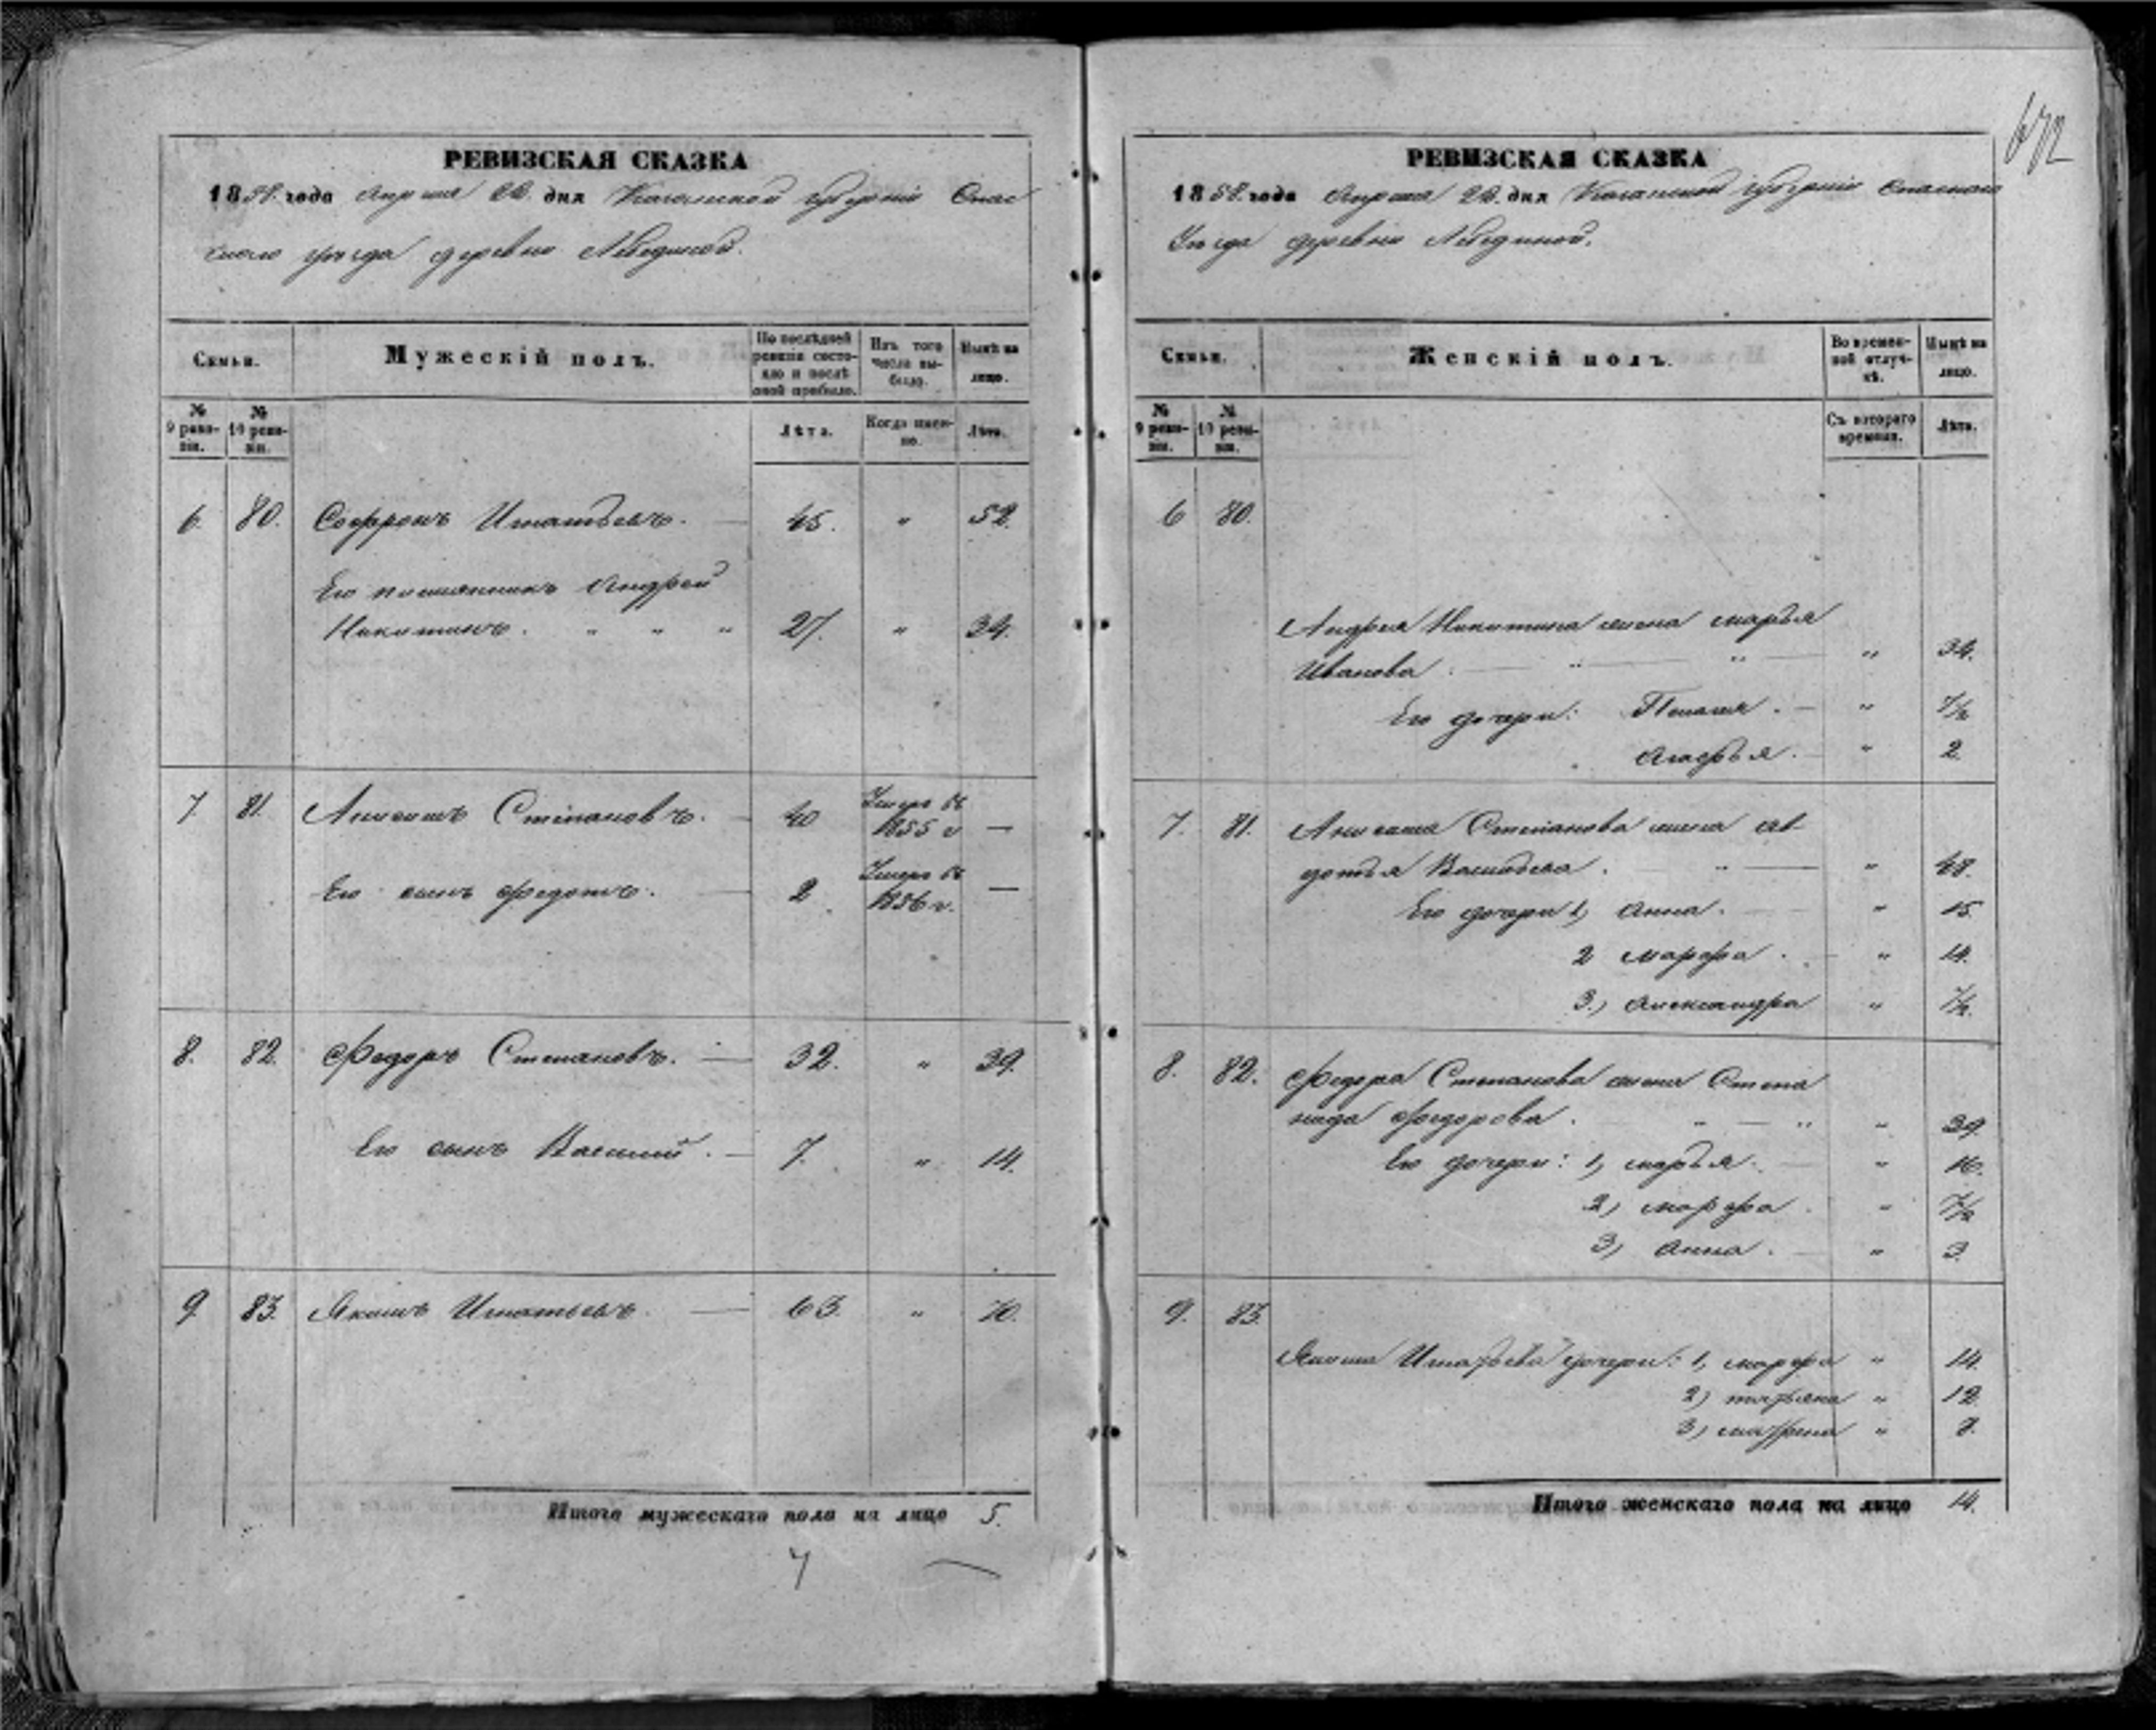 РЕВИЗСКАЯ СКАЗКА
1858 года Апреля 22 дня Казанской губерніи Спас
скаго уѣзда деревни Лебединой.
Семьи.
Мужескій полъ.
По послѣдней ревизіи состояло и послѣ оной прибыло.
Изъ того числа выбыло.
Нынѣ на лицо.
№ 9 ревизіи.
№ 10 ревизіи.
Лѣта.
Когда именно.
Лѣта.
6. 80. Софронъ Игнатьевъ. 45. " 52.
Его племянникъ Андрей
Никитинъ. " " " 27. " 34.
7. 81. Анисимъ Степановъ. 40 Умеръ въ 1855 г —
Его сынъ Федотъ. 2 Умеръ въ 1856 г. —
8. 82. Федоръ Степановъ. 32. " 39.
Его сынъ Василий. 7. " 14.
9. 83. Якимъ Игнатьевъ. 63. " 70.
Итого мужескаго пола на лицо 5.
672
РЕВИЗСКАЯ СКАЗКА
1858 года Апреля 22 дня Казанской губерніи Спаскаго
Уѣзда деревни Лебединой.
Семьи.
Женскій полъ.
Во временной отлучкѣ.
Нынѣ на лицо.
№ 9 ревизіи.
№ 10 ревизіи.
Съ котораго времени.
Лѣта.
6 80.
Андрея Никитина жена Марья
Иванова. " " " 34.
Его дочери: Пелагея. " 7/2
Агафья. " 2
7. 81. Анисима Степанова жена Ав-
дотья Васильева. " " 48.
Его дочери 1, Анна. " 15.
2 Марфа. " 14.
3., Александра " 7/2.
8. 82. Федора Степанова жена Степа
нида Федорова. " " " 39.
Его дочери: 1, Марья. " 16.
2, Марфа. " 7/2
3, Анна. " 3.
9. 83.
Якима Игнатьева дочери: 1, Марфа " 14.
2) Татьяна " 12.
3, Матрена " 8.
Итого женскаго пола на лицо 14.